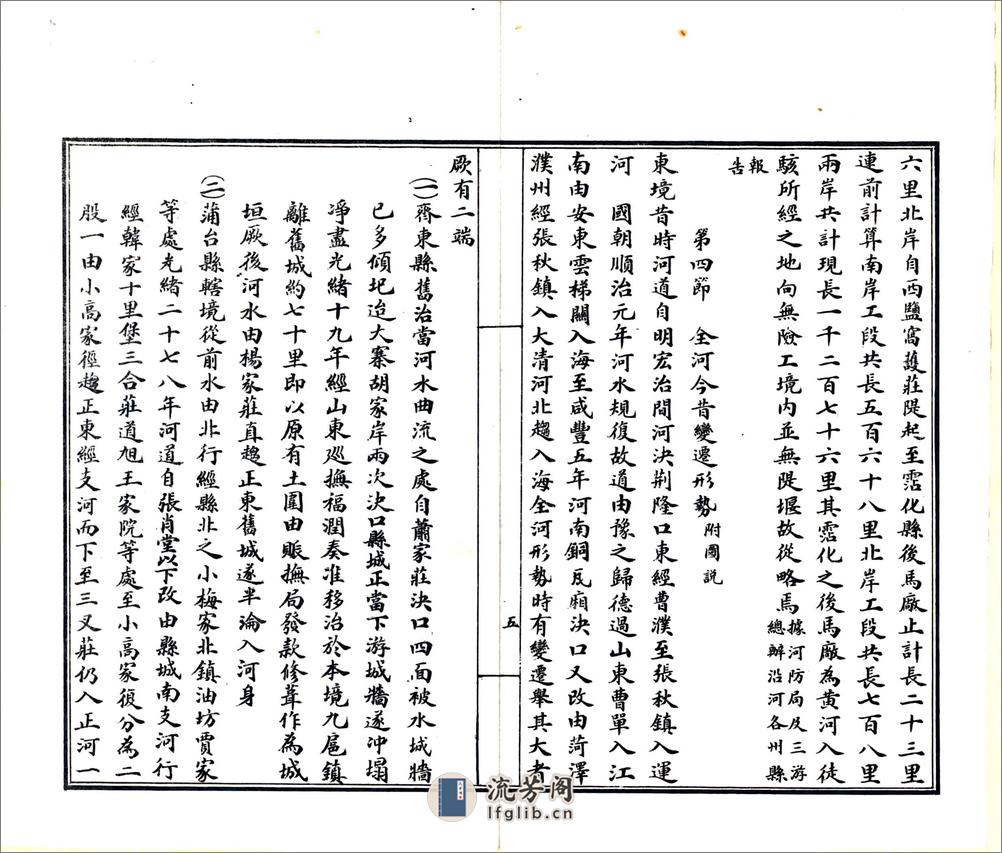 六里北岸自西鹽窩護莊隄起至霑化縣後馬廠止計長二十三里
連前計算南岸工段共長五百六十八里北岸工段共長七百八里
兩岸共計現長一千二百七十六里其霑化之後馬廠為黄河入徒
駭所經之地向無險工境内並無隄堰故從略馬據河防局及三游
總辦沿河各州縣
報
告
第四節 全河今昔變遷形勢附圖説
東境昔時河道自明宏治間河決荆隆口東經曹濮至張秋鎮入運
河 國朝順治元年河水規復故道由豫之歸德過山東曹單入江
南由安東雲梯關入海至咸豐五年河南銅瓦廂決口又改由菏澤
濮州經張秋鎮入大清河北趨入海全河形勢時有變遷舉其大者
五
厥有二端
(一)齊東縣舊治當河水曲流之處自蕭家莊決口四面被水城牆
已多傾圯迨大寨胡家岸兩次決口縣城正當下游城牆遂沖塌
凈盡光緒十九年經山東巡撫福潤奏准移治於本境九扈鎮
離舊城約七十里即以原有土圍由賑撫局發款修葺作為城
垣厥後河水由楊家莊直趨正東舊城遂半淪入河身
(二)蒲台縣轄境從前水由北行經縣北之小梅家北鎮油坊賈家
等處光緒二十七八年河道自張肖堂以下改由縣城南支河行
經韓家十里堡三合莊道旭王家院等處至小高家復分為二
股一由小高家徑趨正東經支河而下至三叉莊仍入正河一
流芳阁
lfglib.cn